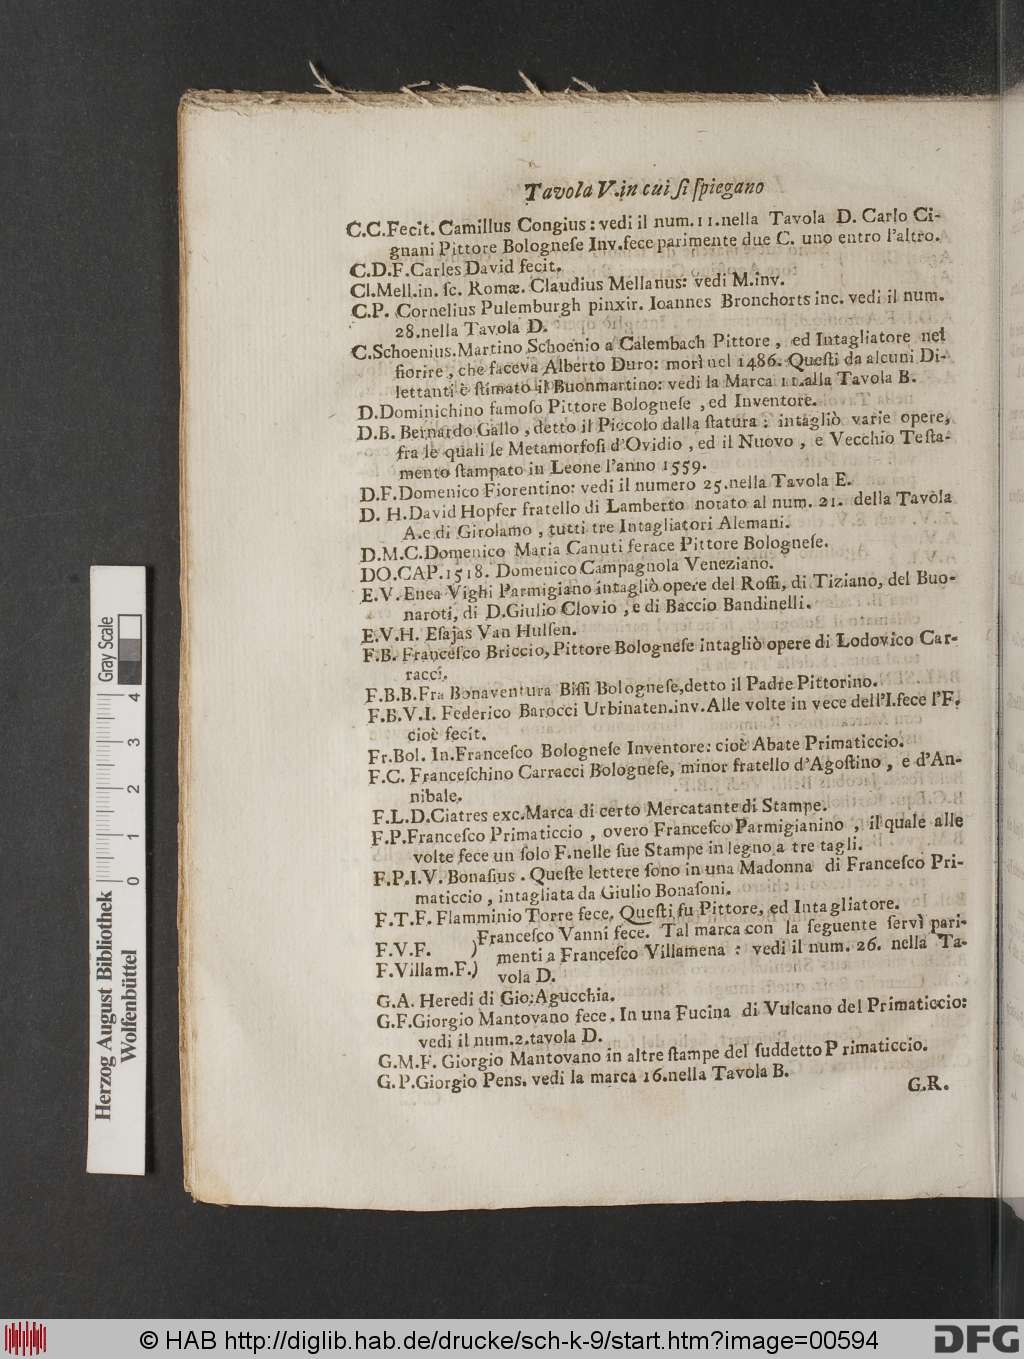 Tavola V.in cui ſi ſpiegano
C.C.Fecit. Camillus Congius : vedi il num.11.nella Tavola D. Carlo Ci-
gnani Pittore Bologneſe Inv.fece parimente due C. uno entro l'altro.
C.D.F.Carles David fecit.
Cl.Mell.in. ſc. Romæ. Claudius Mellanus: vedi M.inv.
C.P. Cornelius Pulemburgh pinxir. Ioannes Bronchorts inc. vedi il num.
28.nella Tavola D.
C.Schoenius.Martino Schoenio a Calembach Pittore , ed Intagliatore nel
fiorire , che faceva Alberto Duro: morì nel 1486. Queſti da alcuni Di-
lettanti è ſtimato il Buonmartino: vedi la Marca 11.alla Tavola B.
D.Dominichino famoſo Pittore Bologneſe , ed Inventore.
D.B. Bernardo Gallo , detto il Piccolo dalla ſtatura : intagliò varie opere,
fra le quali le Metamorfoſi d'Ovidio , ed il Nuovo , e Vecchio Teſta-
mento ſtampato in Leone l'anno 1559.
D.F.Domenico Fiorentino: vedi il numero 25.nella Tavola E.
D. H.David Hopfer fratello di Lamberto notato al num. 21. della Tavola
A.e di Girolamo , tutti tre Intagliatori Alemani.
D.M.C.Domenico Maria Canuti ferace Pittore Bologneſe.
DO.CAP.1518. Domenico Campagnola Veneziano.
E.V.Enea Vighi Parmigiano intagliò opere del Roſſi, di Tiziano, del Buo-
naroti, di D.Giulio Clovio , e di Baccio Bandinelli.
E.V.H. Eſajas Van Hulſen.
F.B. Franceſco Briccio, Pittore Bologneſe intagliò opere di Lodovico Car-
racci.
F.B.B.Fra Bonaventura Biſſi Bologneſe,detto il Padre Pittorino.
F.B.V.I. Federico Barocci Urbinaten.inv.Alle volte in vece dell'I.fece l'F.
cioè fecit.
Fr.Bol. In.Franceſco Bologneſe Inventore: cioè Abate Primaticcio.
F.C. Franceſchino Carracci Bologneſe, minor fratello d'Agoſtino , e d'An-
nibale.
F.L.D.Ciatres exc.Marca di certo Mercatante di Stampe.
F.P.Franceſco Primaticcio , overo Franceſco Parmigianino , il quale alle
volte fece un ſolo F.nelle ſue Stampe in legno a tre tagli.
F.P.I.V. Bonaſius . Queſte lettere ſono in una Madonna di Franceſco Pri-
maticcio , intagliata da Giulio Bonaſoni.
F.T.F. Flamminio Torre fece. Queſti fu Pittore, ed Intagliatore.
F.V.F. ) Franceſco Vanni fece. Tal marca con la ſeguente ſervì pari-
F.Villam.F.) menti a Franceſco Villamena : vedi il num. 26. nella Ta-
vola D.
G.A. Heredi di Gio:Agucchia.
G.F.Giorgio Mantovano fece . In una Fucina di Vulcano del Primaticcio:
vedi il num.2.tavola D.
G.M.F. Giorgio Mantovano in altre ſtampe del ſuddetto P rimaticcio.
G.P.Giorgio Pens. vedi la marca 16.nella Tavola B.
G.R.
Herzog August Bibliothek
Wolfenbüttel
0 1 2 3 4
Gray Scale
© HAB http://diglib.hab.de/drucke/sch-k-9/start.htm?image=00594
DFG